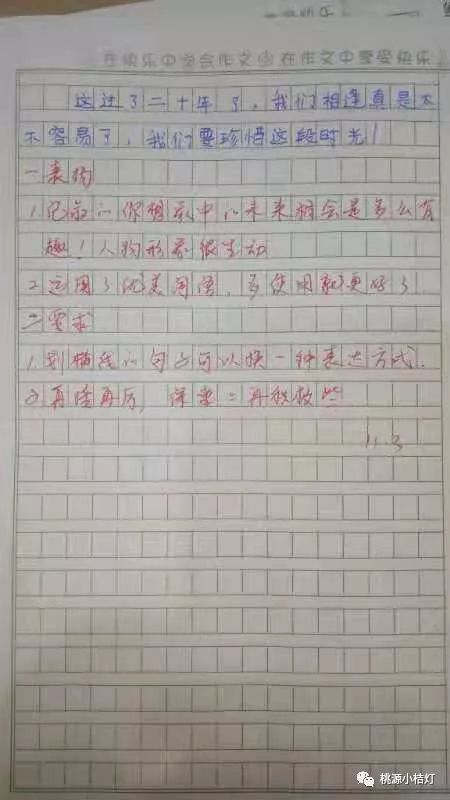 在快乐中学会作文 在作文中享受快乐
这过了二十年了，我们相逢真是太
不容易了，我们要珍惜这段时光！
一表扬
1.记录的你想象中的未来相会是多么有
趣！人物形象很生动
2.运用了优美词语，多使用就更好了.
二要求
1.划横线的句子可以换一种表达方式.
2.再接再厉，保要二再积极些
11.3
桃源小桔灯